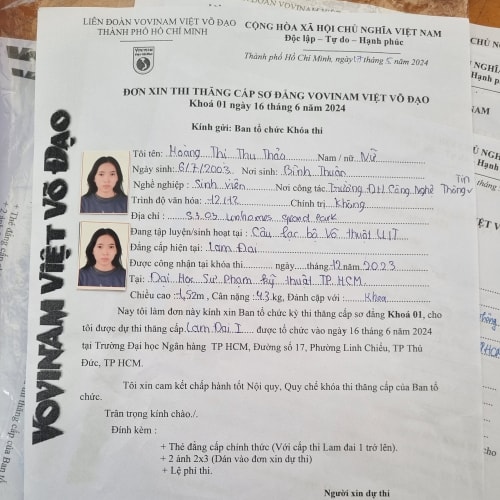 LIÊN ĐOÀN VOVINAM VIỆT VÕ ĐẠO
THÀNH PHỐ HỒ CHÍ MINH
CỘNG HÒA XÃ HỘI CHỦ NGHĨA VIỆT NAM
Độc lập - Tự do - Hạnh phúc
Thành phố Hồ Chí Minh, ngày 17 tháng 5 năm 2024
ĐƠN XIN THI THĂNG CẤP SƠ ĐẲNG VOVINAM VIỆT VÕ ĐẠO
Khoá 01 ngày 16 tháng 6 năm 2024
Kính gửi: Ban tổ chức Khóa thi
VOVINAM VIỆT VÕ ĐẠO
Tôi tên: Hoàng Thị Thu Thảo Nam / nữ Nữ
Ngày sinh: 6/7/2003 Nơi sinh: Bình Thuận
Nghề nghiệp: Sinh viên Nơi công tác Trường ĐH Công Nghệ Thông Tin
Trình độ văn hóa: 12/12 Chính trị Không
Địa chỉ: S3.05 Vinhomes grand Park
Đang tập luyện/sinh hoạt tại: Câu lạc bộ Võ thuật UIT
Đẳng cấp hiện tại: Lam Đai
Được công nhận tại khóa thi ngày tháng 12 năm 2023
Tại: Đại Học Sư phạm kỹ thuật TP.HCM
Chiều cao: 1,52m, Cân nặng: 43 kg, Đánh cặp với: Khoa
Nay tôi làm đơn này kính xin Ban tổ chức kỳ thi thăng cấp sơ đẳng Khoá 01, cho
tôi được dự thi thăng cấp Lam Đai I được tổ chức vào ngày 16 tháng 6 năm 2024
tại Trường Đại học Ngân hàng TP HCM, Đường số 17, Phường Linh Chiểu, TP Thủ
Đức, TP HCM.
Tôi xin cam kết chấp hành tốt Nội quy, Quy chế khóa thi thăng cấp của Ban tổ
chức.
Trân trọng kính chào./.
Đính kèm :
+ Thẻ đẳng cấp chính thức (Với cấp thi Lam đai 1 trở lên).
+ 2 ảnh 2x3 (Dán vào đơn xin dự thi)
+ Lệ phí thi.
Người xin dự thi